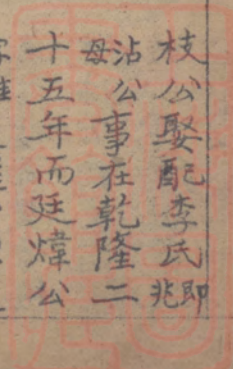 枝公娶配李氏即兆
沾公母事在乾隆二
十五年而廷煒公